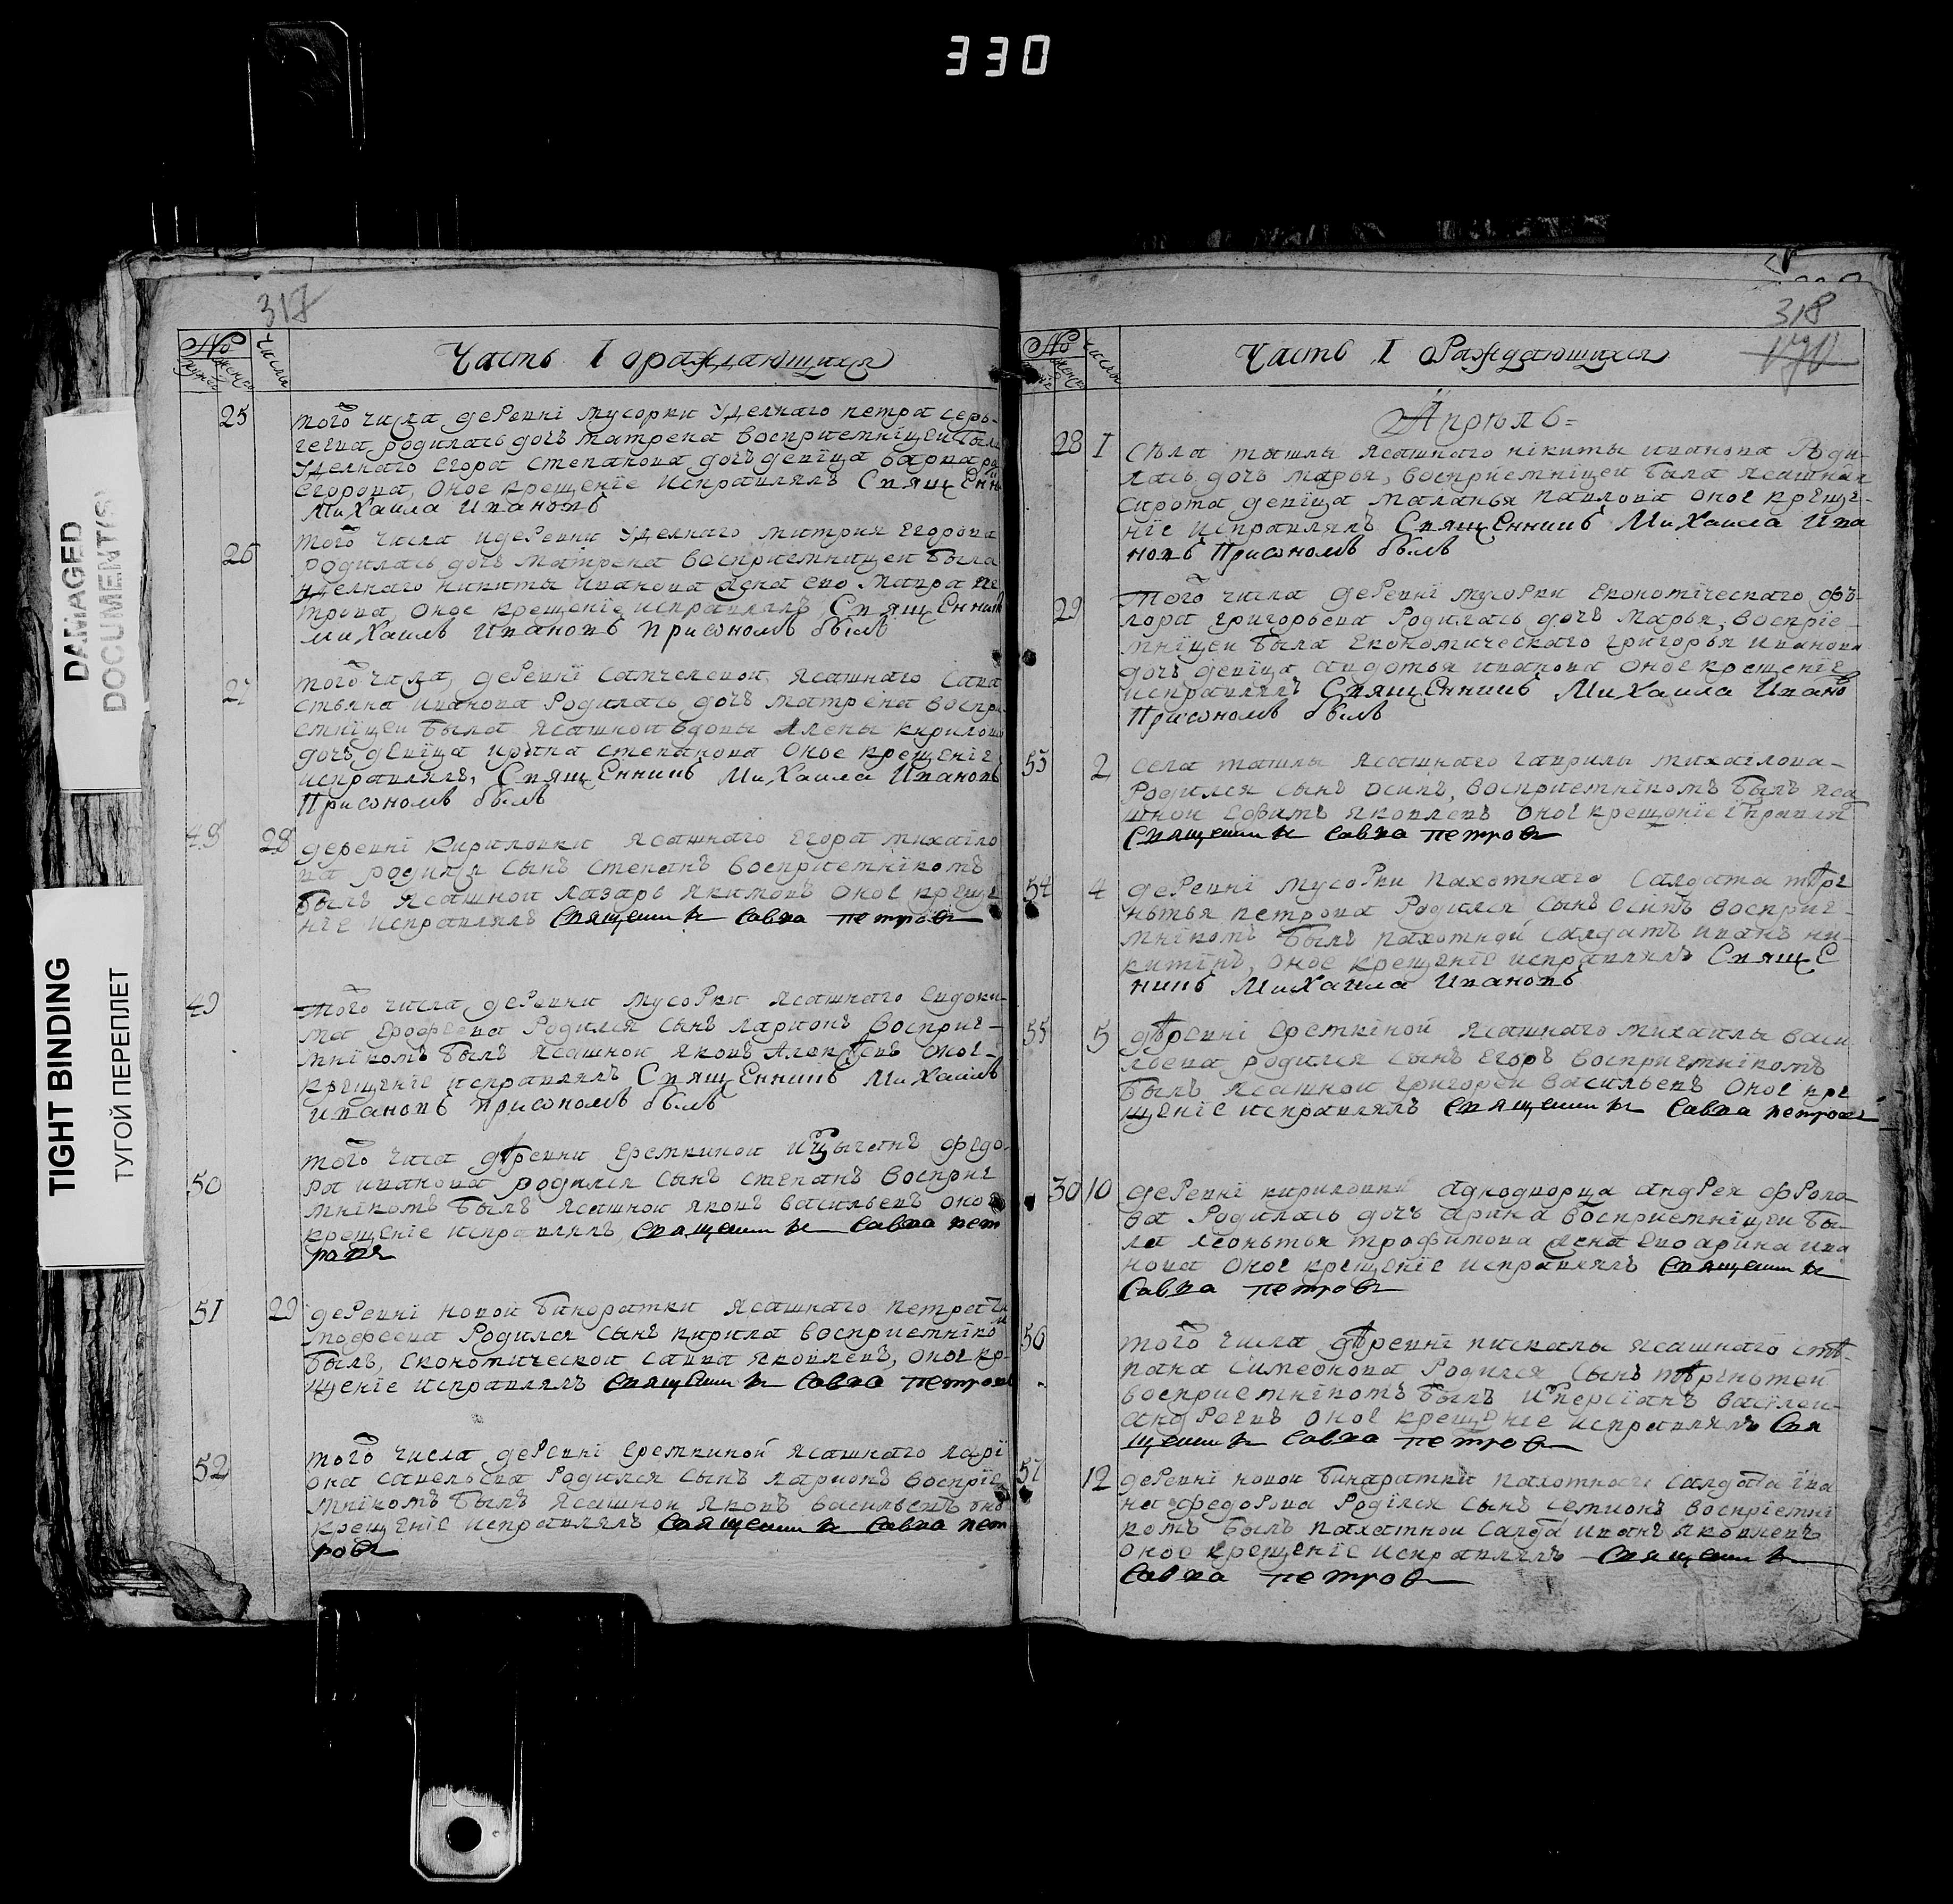 330
DAMAGED
DOCUMENT(S)
TIGHT BINDING
ТУГОЙ ПЕРЕПЛЕТ
317
№
числа
Часть I ораждающихся
25
того числа деревни мусорки Уделнаго петра серь-
гева родилась дочь матрена восприемницеи была
Уделнаго Егора степанова дочь девица варвара
Егорова, оное крещение исправлялъ Священн
Михаила Ивановъ
26
того числа идеревни Уделнаго митрия Егорова
родилась дочь матрена восприемницеи была
уделнаго никиты иванова жена ево мавра пе
трова, оное крещение исправлялъ Священникъ
Михаилъ Ивановъ присономъ былъ
27
того числа, деревни Ясашнаго сава
стьяна иванова Родилась дочь матрена воспри
емницеи была Ясашнои вдовы Алены кирилов
дочь девица ирина степанова оное крещение
исправлялъ, Священникъ Михаила Ивановъ
Присономъ былъ
48 28
деревни Кириловки Ясашнаго Егора михаило
ва родился сынъ степанъ восприемникомъ
былъ Ясашнои лазарь якимовъ оное креще
ние исправлялъ священникъ савва петровъ
49
того числа деревни мусорки Ясашнаго Евдоки-
ма Ерофеева Родился сынъ ларионъ восприе-
мникомъ былъ Ясашнои яковъ Алексѣевъ оное-
крещение исправлялъ Священникъ Михаилъ
Ивановъ присономъ былъ
50
того числа дѣревни Еремкинои федо-
ра иванова родился сынъ степанъ восприе
мникомъ былъ Ясашнои яковъ васильевъ оное
крещение исправлялъ священникъ савва пет
ровъ
51 29
деревни новои бинаратки Ясашнаго петра ти
мофеева Родился сынъ кирила восприемнико
былъ, Економическои савва яковлевъ, оное кр-
щение исправлялъ священникъ савва петровъ
52
того числа деревни Еремкиной Ясашнаго лари
она савельева Родился сынъ ларионъ восприе
мникомъ былъ Ясашнои яковъ васильевъ оно
крещение исправлялъ священникъ савва пет
ровъ
318
№
числа
Часть I ораждающихся
Апрель=
28 1
Сѣла ташлы Ясашнаго никиты иванова Роди-
лась дочь марья, восприемницеи была Ясашная
сирота девица маланья павлова оное креще-
ние исправлялъ Священникъ Михаила Ива
новъ Присономъ былъ
29
Того числа деревни мусорки Економическаго фъ-
лора григорьева Родилась дочь марья, восприе-
мницеи была Економическаго григорья иванова
дочь девица авдотья иванова оное крещение
исправлялъ Священникъ Михаила Ивано
Присономъ былъ
53 2
села ташлы Ясашнаго гаврилы михаилова-
Родился сынъ осипъ, восприемникомъ былъ яса
шнои Ефимъ яковлевъ оное крещение справля
священникъ савва петровъ
54 4
деревни мусорки пахотнаго салдата тѣре
нтья петрова Родился сынъ осипъ восприе-
мникомъ былъ пахотной салдатъ иванъ ни-
китинъ, оное крещение исправлялъ Священ
никъ Михаила Ивановъ
55 5
дѣревни Еремкиной Ясашнаго михаилы васи
льева родился сынъ Егоръ восприемникомъ
былъ Ясашнои григореи васильевъ оное кре
щение исправлялъ священникъ савва петровъ
30 10
деревни кириловки аднодворца андрея фрола
ва Родилась дочь арина восприемницеи бы-
ла леонтья трофимова жена ево арина ива
нова оное крещение исправлялъ священникъ
савва петровъ
56
того числа дѣревни пискалы ясашнаго стѣ-
пана симеонова Родился сынъ
восприемникомъ былъ василеи
андреевъ оное крещение исправлялъ свя
щенникъ савва петровъ
57 12
деревни новои бинаратки пахотнаго салдата ива
на федорова Родился сынъ семионъ восприемни
комъ былъ пахатнои салда иванъ яковлевъ
оное крещение исправлялъ священникъ
савва петровъ